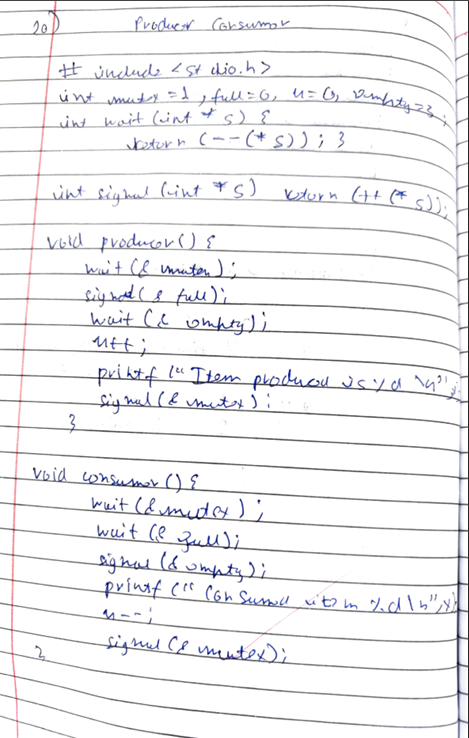 20) Producer Consumer
# include <stdio.h>
int mutex = 1, full = 0, x = 0, empty = 3;
int wait (int * s) {
return (--(* s)); }
int signal (int * s) return (++ (* s));
void producer() {
wait (& mutex);
signal (& full);
wait (& empty);
x++;
printf (" Item produced is %d \n",
signal (& mutex);
}
void consumer () {
wait (& mutex);
wait (& full);
signal (& empty);
printf (" Consumed item %d \n", x)
x--;
signal (& mutex);
}